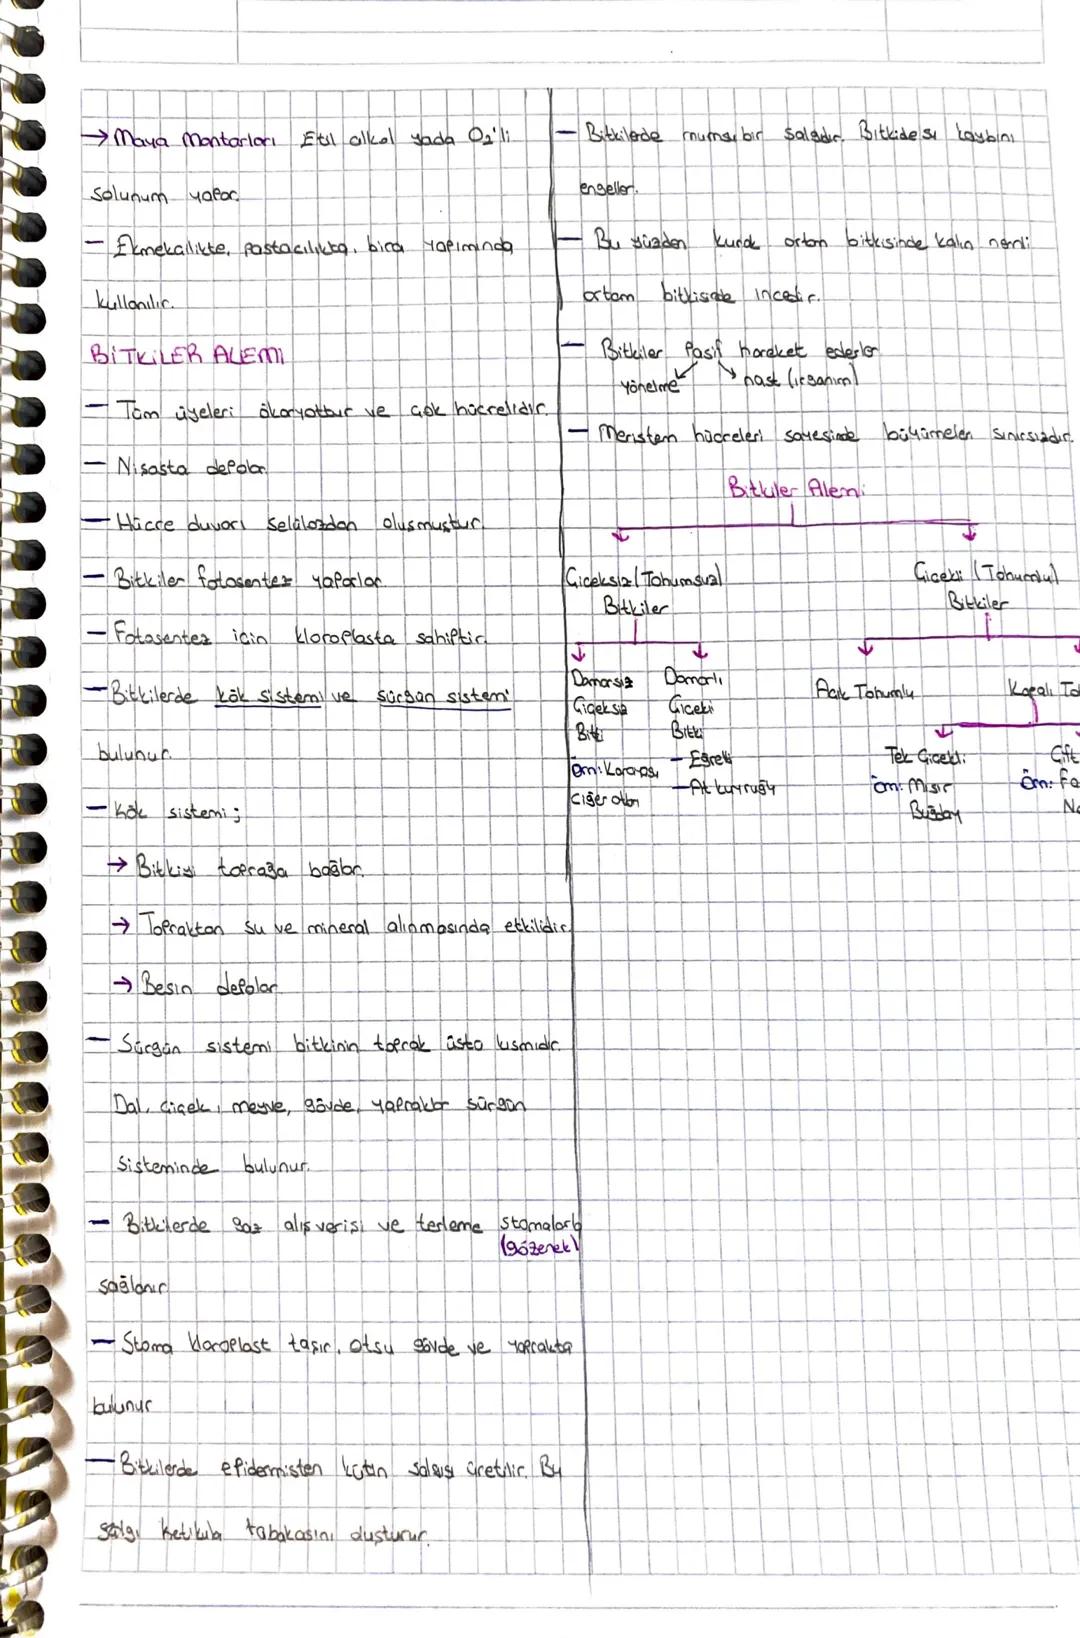 → Maya Mantarları Etil alkol yada O₂'li
solunum yapar.
- Ekmekcilikte, pastacılıkta, bira yapımında
kullanılır.
BİTKİLER ALEMİ
- Tüm üyeleri ökaryottur ve çok hücrelidir.
- Nişasta depolar
- Hücre duvarı selülozdan oluşmuştur.
- Bitkiler fotosentez yaparlar
- Fotosentez için kloroplasta sahiptir.
- Bitkilerde kök sistemi ve sürgün sistemi
bulunur.
- Kök sistemi;
→ Bitkiyi toprağa bağlar.
→ Topraktan su ve mineral alınmasında etkilidir.
→ Besin depolar
- Sürgün sistemi bitkinin toprak üstü kısmıdır.
Dal, çiçek, meyve, gövde, yapraklar sürgün
sisteminde bulunur.
- Bitkilerde gaz alışverişi ve terleme stomalarla
(gözenek)
sağlanır
- Stoma kloroplast taşır, otsu gövde ve yaprakta
bulunur
- Bitkilerde epidermisten kütin salgısı üretilir. Bu
salgı ketikula tabakasını oluşturur.
- Bitkilerde mumsu bir salgıdır. Bitkide su kaybını
engeller.
- Bu yüzden kurak ortam bitkisinde kalın nemli
ortam bitkisinde incedir.
- Bitkiler Pasif hareket ederler
yönelme nasti (ırganım)
- Meristem hücreleri sayesinde büyümeleri sınırsızdır.
Bitkiler Alemi
Çiçeksiz (Tohumsuz) Çiçekli (Tohumlu)
Bitkiler Bitkiler
Damarsız Damarlı
Çiçeksiz Çiçekli
Bitki Bitki
Açık Tohumlu Kapalı To
Örn: Karayosu - Eğrelti
Ciğer otları - At kuyruğu
Tek Çiçekli: Çift
Örn: Mısır Örn: Fa
Buğday No